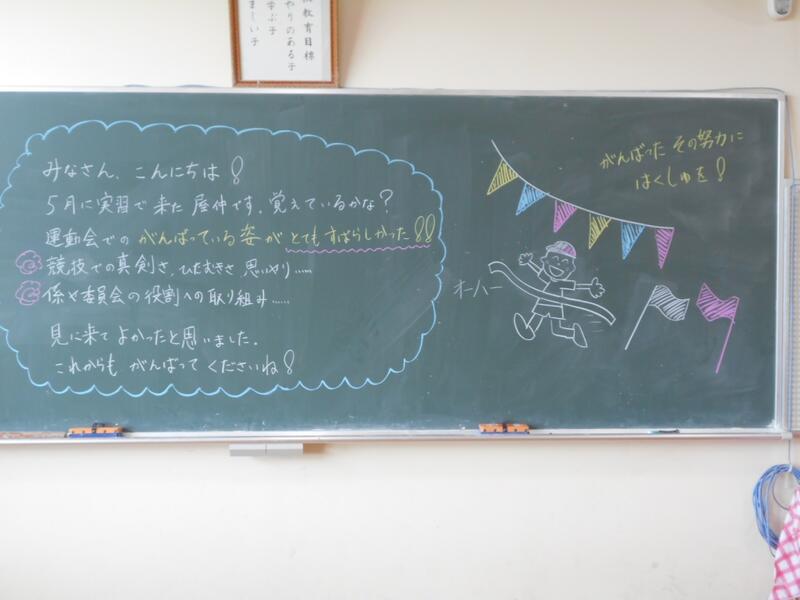 教育目標
やりのある子
学ぶ子
ましい子
みなさん、こんにちは!
5月に実習で来た屋仲です。覚えているかな?
運動会での がんばっている姿が とてもすばらしかった!!
競技での真剣さ、ひたむきさ 思いやり……
係や委員会の役割への取り組み……
見に来て よかったと思いました。
これからも がんばって くださいね!
がんばった その努力に
はくしゅを!
オーハー